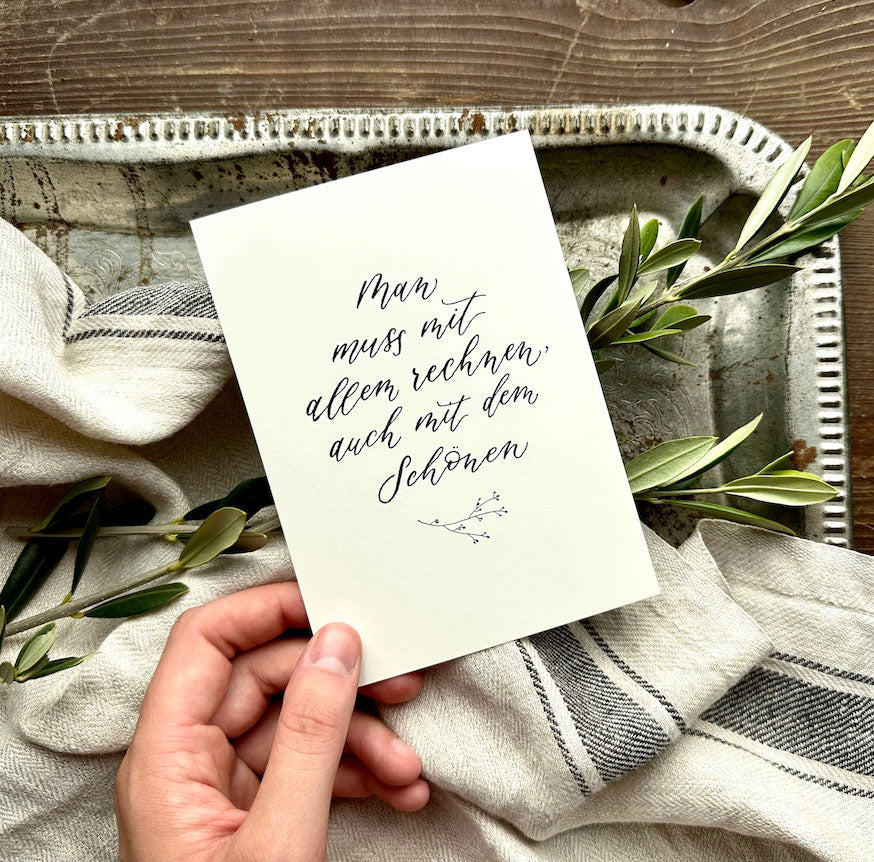 Man
muss mit
allem rechnen,
auch mit dem
Schönen